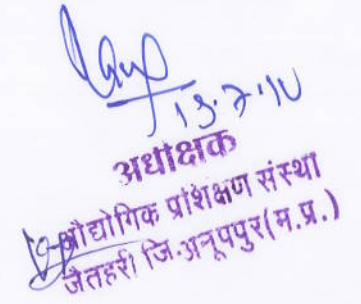 13.7.10
अधीक्षक
औद्योगिक प्रशिक्षण संस्था
जैतहरी जि.अनूपपुर(म.प्र.)